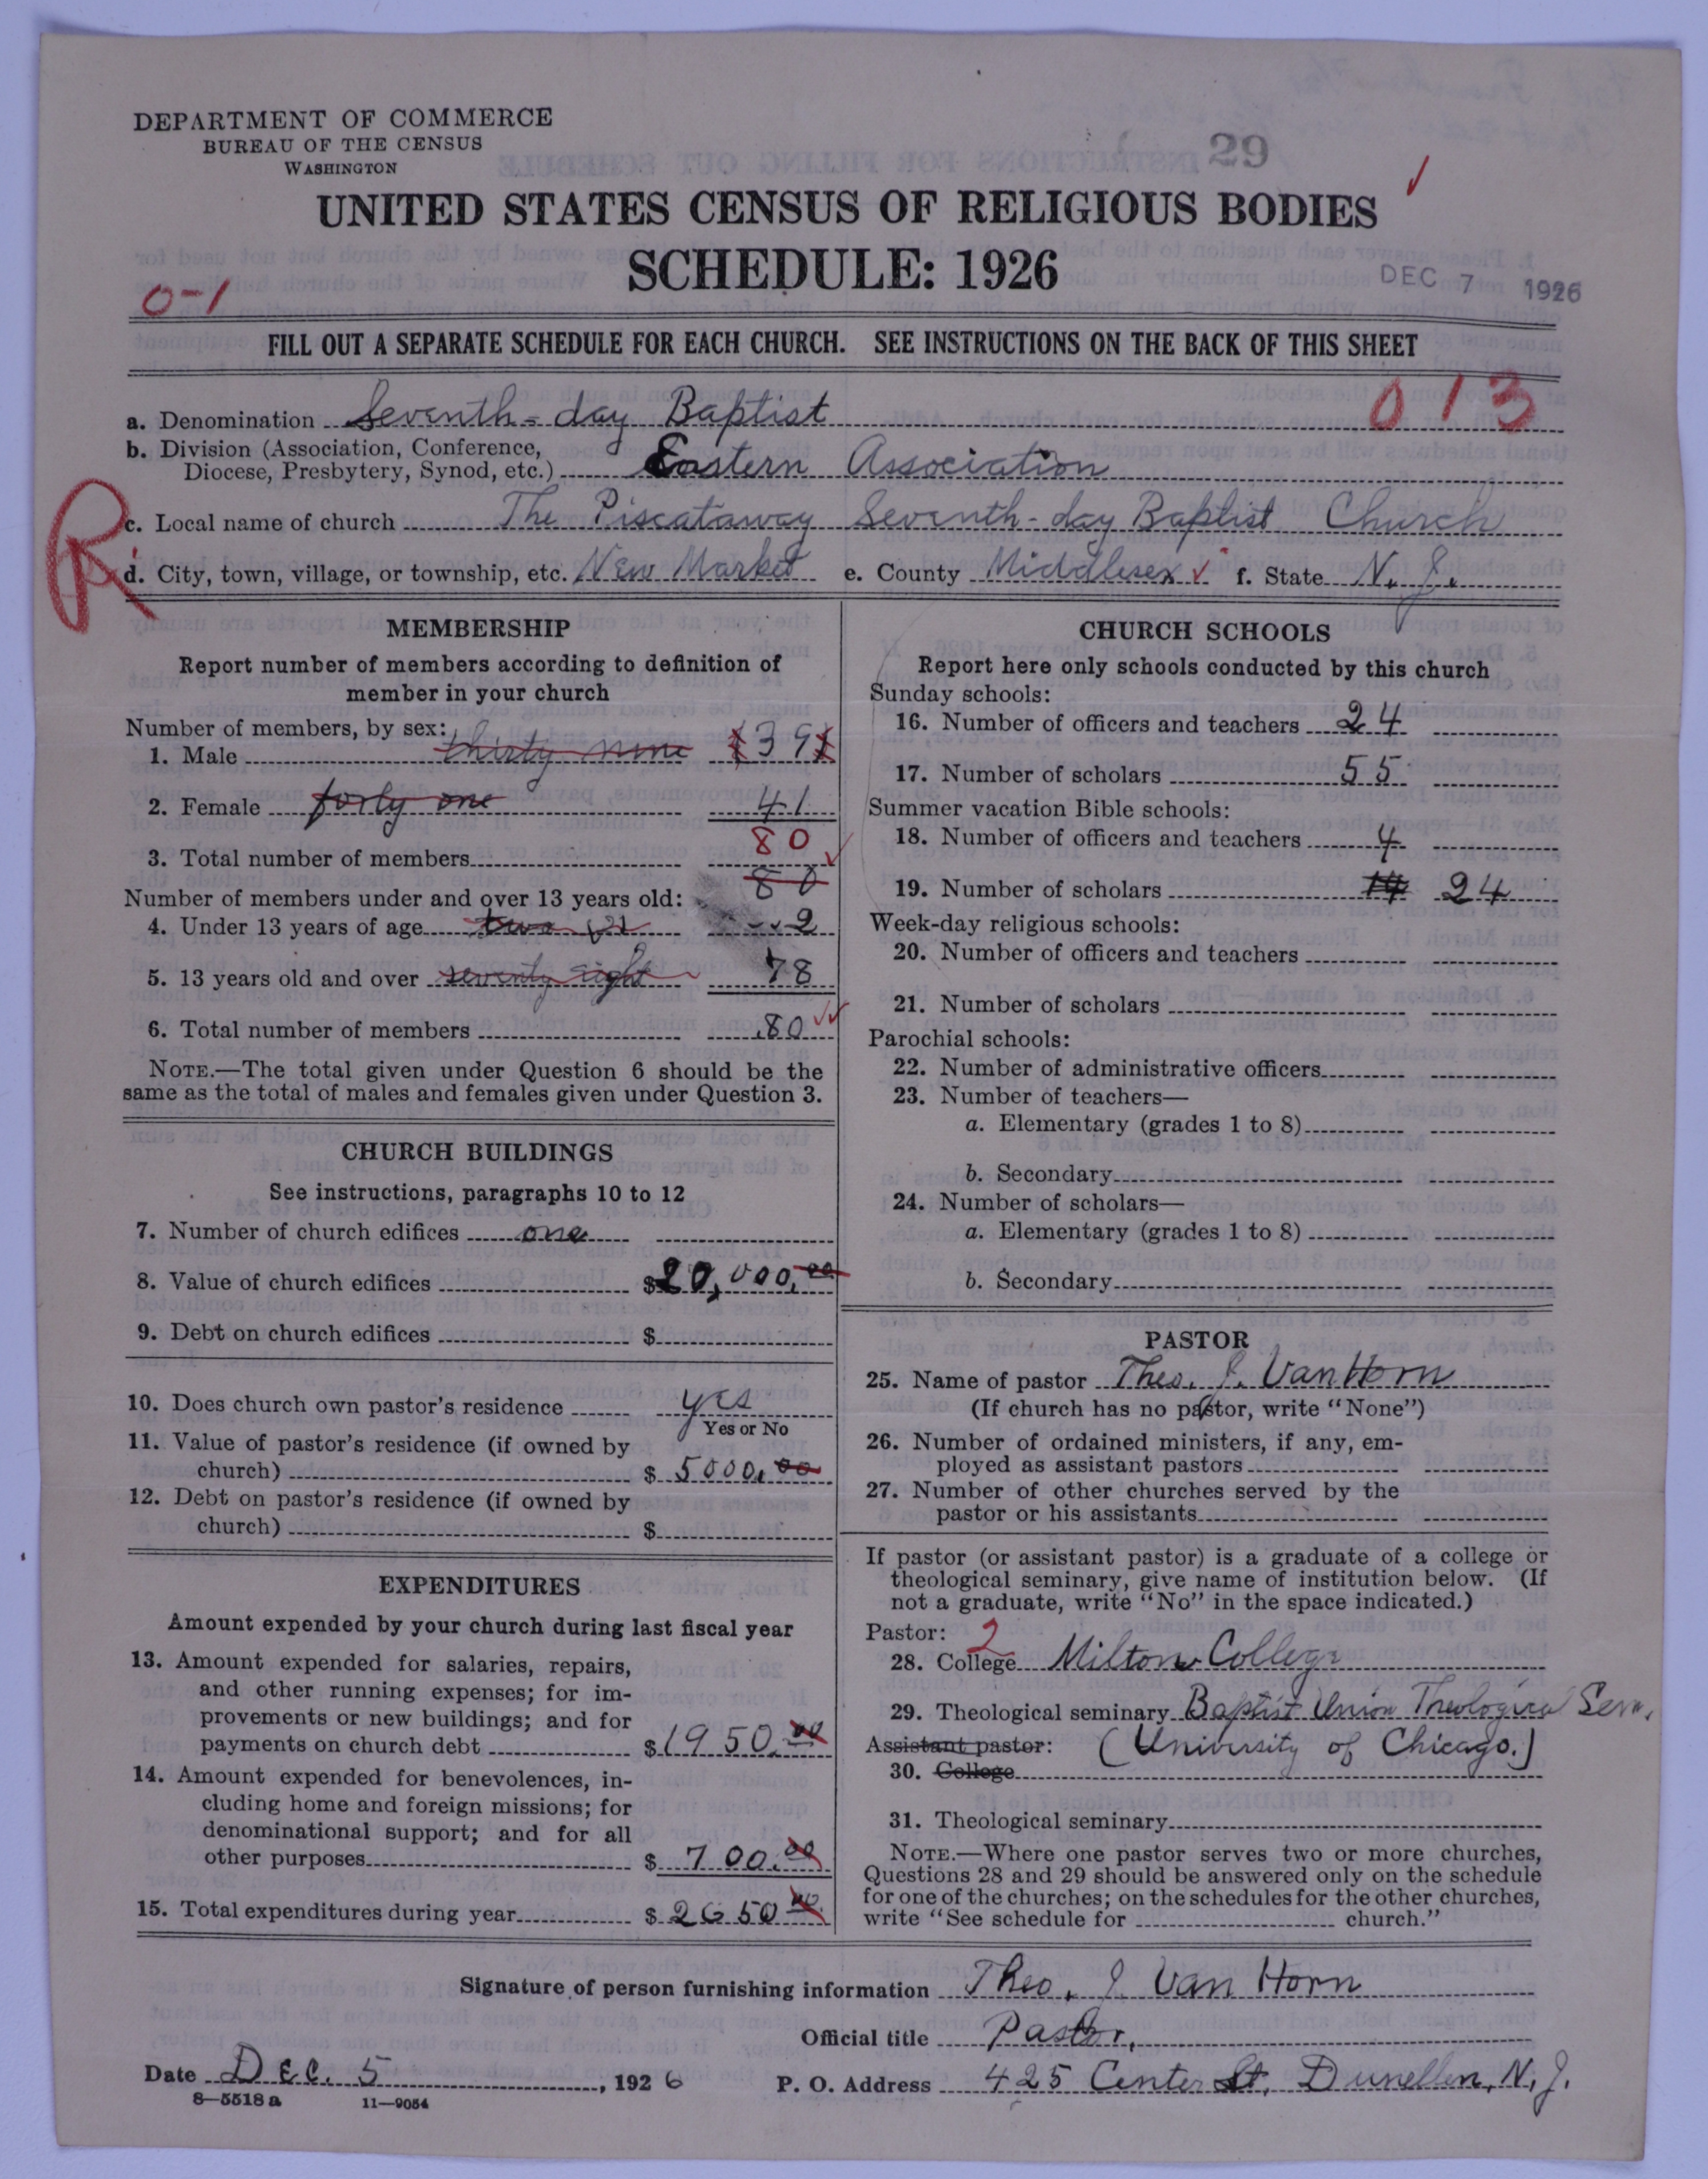 DEPARTMENT OF COMMERCE
BUREAU OF THE CENSUS
WASHINGTON
29
UNITED STATES CENSUS OF RELIGIOUS BODIES
SCHEDULE: 1926
DEC 7 1926
0-1
FILL OUT A SEPARATE SCHEDULE FOR EACH CHURCH. SEE INSTRUCTIONS ON THE BACK OF THIS SHEET
013
a. Denomination Seventh-day Baptist
b. Division (Association, Conference,
Diocese, Presbytery, Synod, etc.) Eastern Association
R
c. Local name of church The Piscataway Seventh-day Baptist Church
d. City, town, village, or township, etc. New Market e. County Middlesex f. State N. J.
MEMBERSHIP
Report number of members according to definition of
member in your church
Number of members, by sex:
1. Male thirty nine (39)
2. Female forty one 41
80
3. Total number of members
80
Number of members under and over 13 years old:
4. Under 13 years of age two (2) 2
5. 13 years old and over seventy eight 78
6. Total number of members 80
NOTE.—The total given under Question 6 should be the
same as the total of males and females given under Question 3.
CHURCH BUILDINGS
See instructions, paragraphs 10 to 12
7. Number of church edifices one
8. Value of church edifices $20,000.00
9. Debt on church edifices $
10. Does church own pastor's residence yes
Yes or No
11. Value of pastor's residence (if owned by
church) $ 5000.00
12. Debt on pastor's residence (if owned by
church) $
EXPENDITURES
Amount expended by your church during last fiscal year
13. Amount expended for salaries, repairs,
and other running expenses; for im-
provements or new buildings; and for
payments on church debt $1950.00
14. Amount expended for benevolences, in-
cluding home and foreign missions; for
denominational support; and for all
other purposes $ 700.00
15. Total expenditures during year $ 2650.00
CHURCH SCHOOLS
Report here only schools conducted by this church
Sunday schools:
16. Number of officers and teachers 24
17. Number of scholars 55
Summer vacation Bible schools:
18. Number of officers and teachers 4
19. Number of scholars 14 24
Week-day religious schools:
20. Number of officers and teachers
21. Number of scholars
Parochial schools:
22. Number of administrative officers
23. Number of teachers—
a. Elementary (grades 1 to 8)
b. Secondary
24. Number of scholars—
a. Elementary (grades 1 to 8)
b. Secondary
PASTOR
25. Name of pastor Theo. J. Van Horn
(If church has no pastor, write "None")
26. Number of ordained ministers, if any, em-
ployed as assistant pastors
27. Number of other churches served by the
pastor or his assistants
If pastor (or assistant pastor) is a graduate of a college or
theological seminary, give name of institution below. (If
not a graduate, write "No" in the space indicated.)
Pastor: 2
28. College Milton College
29. Theological seminary Baptist Union Theological Sem.
Assistant pastor: (University of Chicago.)
30. College
31. Theological seminary
NOTE.—Where one pastor serves two or more churches,
Questions 28 and 29 should be answered only on the schedule
for one of the churches; on the schedules for the other churches,
write "See schedule for church."
Signature of person furnishing information Theo. J. Van Horn
Official title Pastor,
Date Dec. 5, 1926 P. O. Address 425 Center St. Dunellen, N. J.
8—5518 a 11—9054